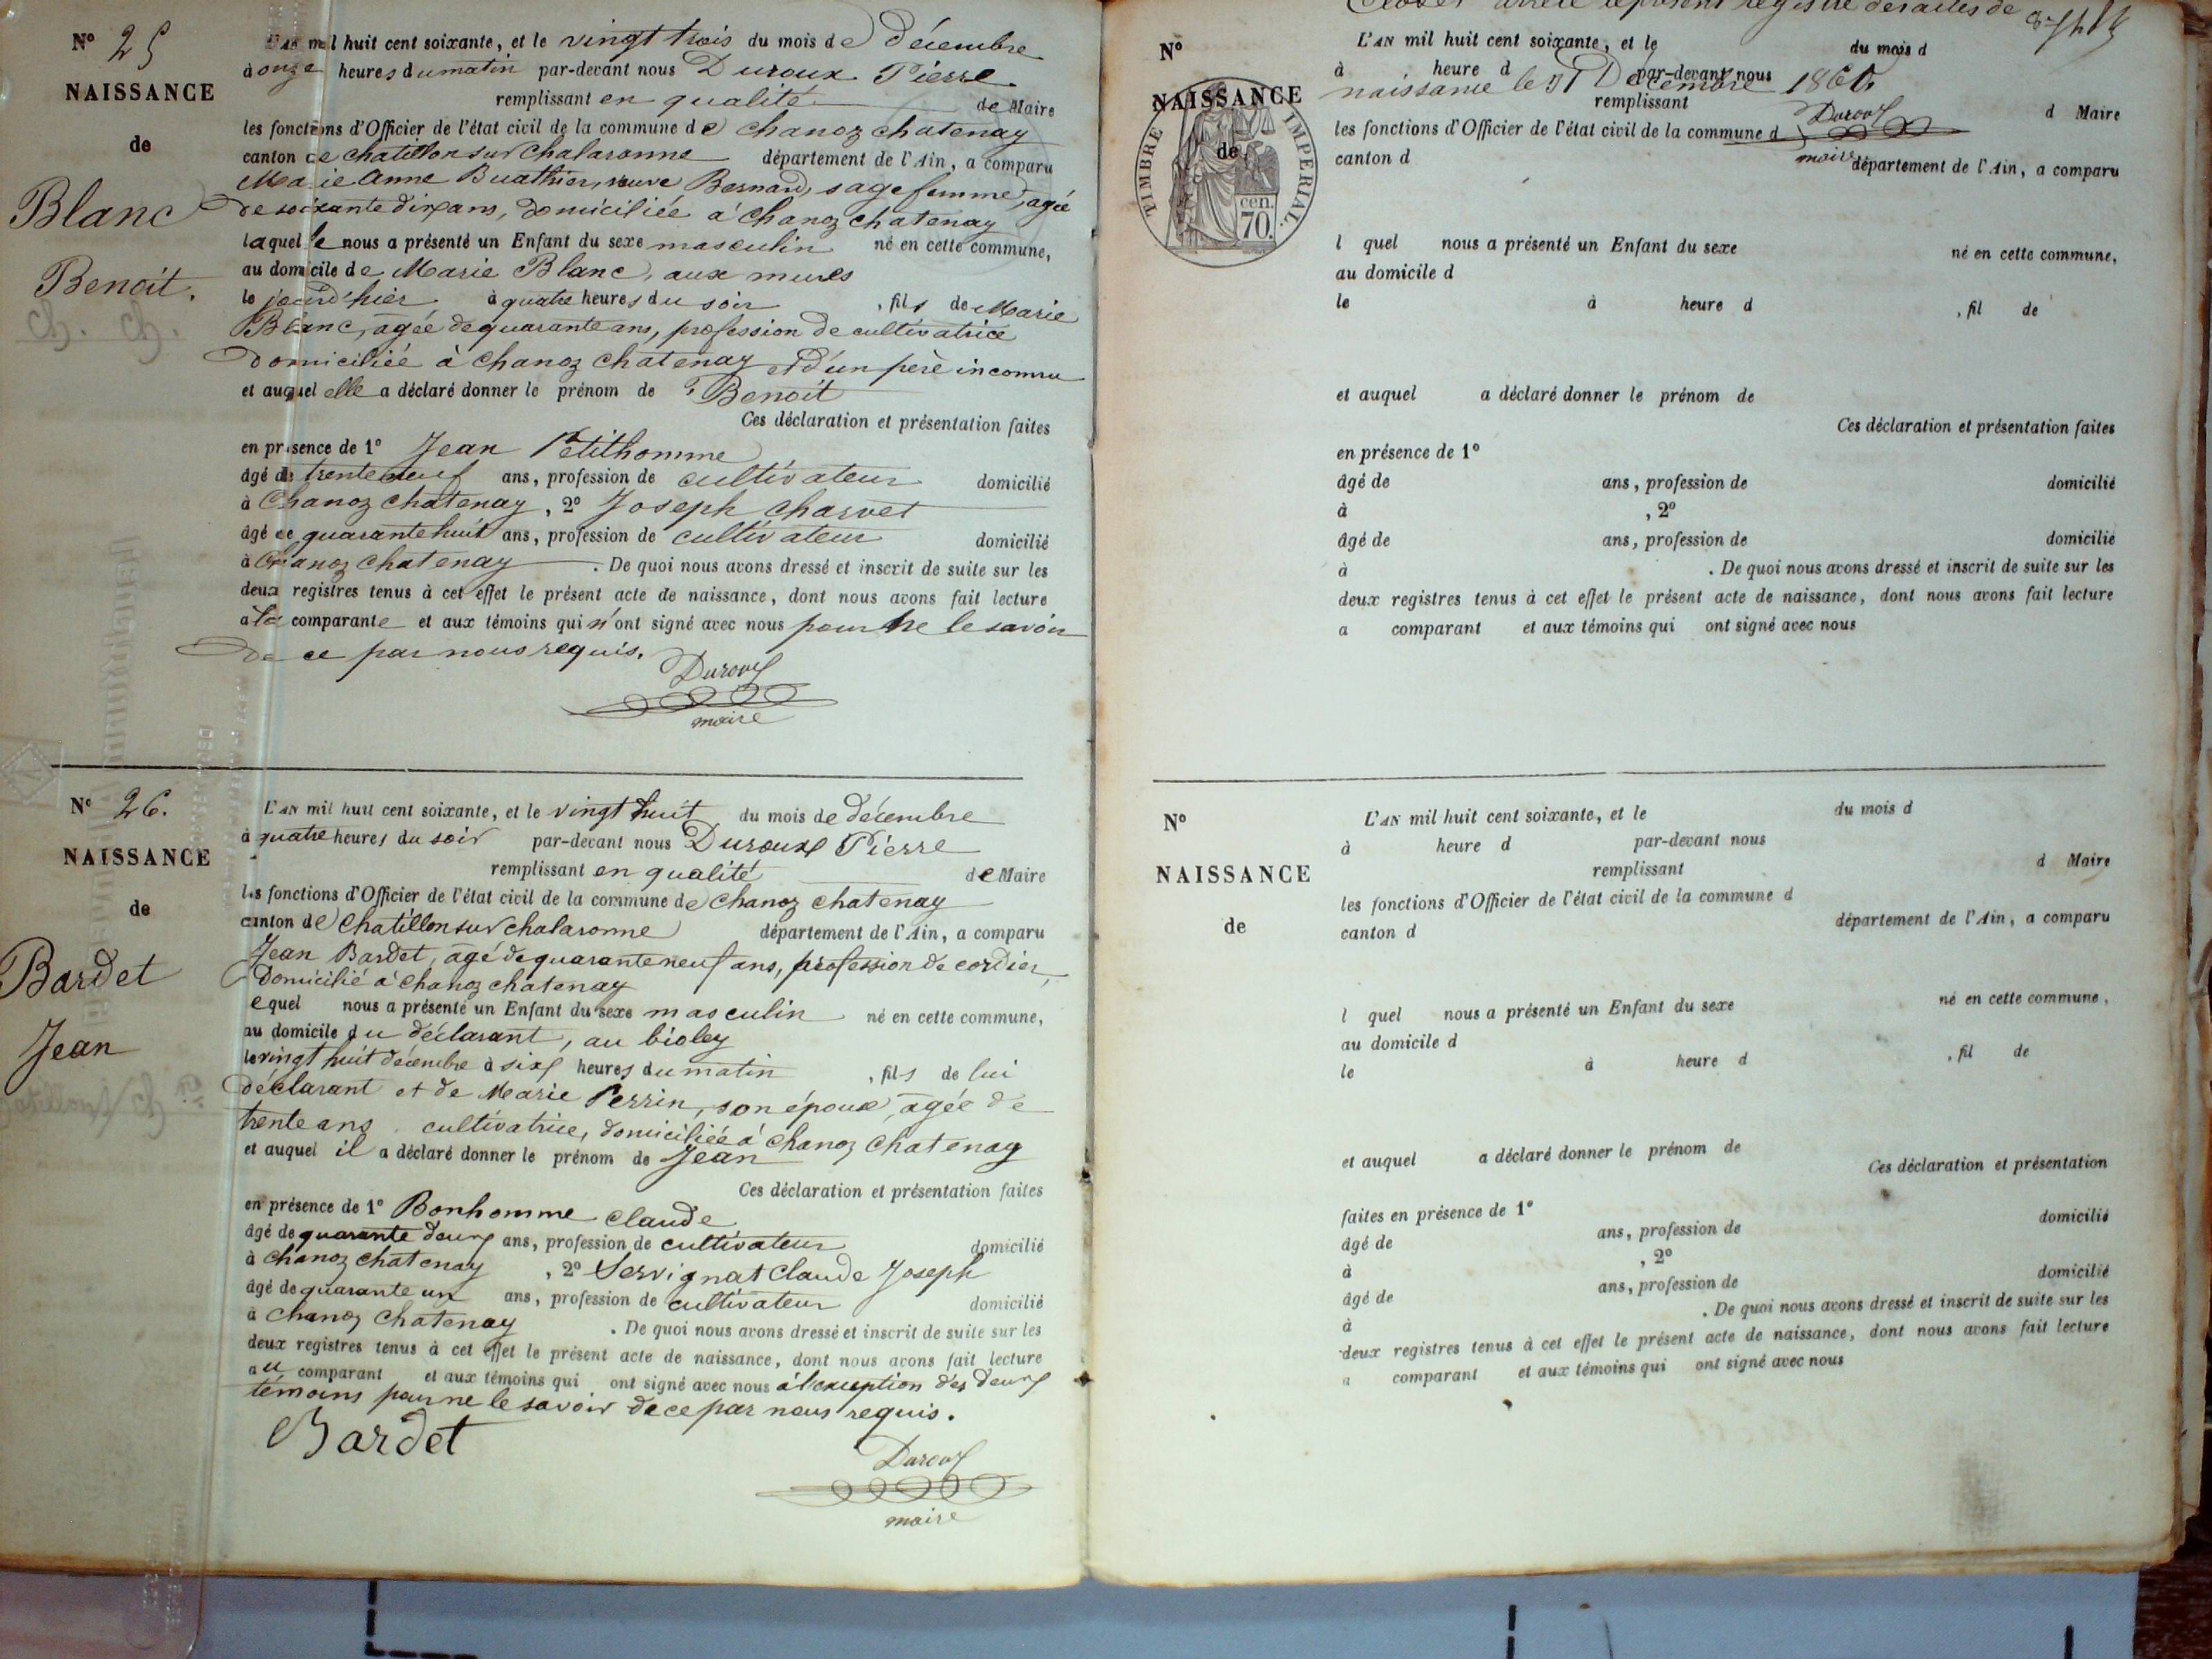 N° 25
NAISSANCE
de
Blanc
Benoit.
L'AN mil huit cent soixante, et le vingt trois du mois de décembre
à onze heures du matin par-devant nous Duroux Pierre
remplissant en qualité de Maire
les fonctions d'Officier de l'état civil de la commune de Chanoz chatenay
canton de Chatillon sur Chalaronne département de l'Ain, a comparu
Marie Anne Buathier, veuve Bernard, sage femme, agée
de soixante dix ans, domiciliée à Chanoz chatenay
laquelle nous a présenté un Enfant du sexe masculin né en cette commune,
au domicile de Marie Blanc, aux mures
le jourd'hier à quatre heures du soir , fils de Marie
Blanc, agée de quarante ans, profession de cultivatrice
domiciliée à Chanoz chatenay et d'un père inconnu
et auquel elle a déclaré donner le prénom de Benoit
Ces déclaration et présentation faites
en présence de 1° Jean Petithomme
âgé de trente neuf ans, profession de cultivateur domicilié
à Chanoz chatenay, 2° Joseph Charvet
âgé de quarante huit ans, profession de cultivateur domicilié
à Chanoz chatenay . De quoi nous avons dressé et inscrit de suite sur les
deux registres tenus à cet effet le présent acte de naissance, dont nous avons fait lecture
a la comparante et aux témoins qui n'ont signé avec nous pour ne le savoir
de ce par nous requis.
Duroux
maire
N° 26.
NAISSANCE
de
Bardet
Jean
L'AN mil huit cent soixante, et le vingt huit du mois de décembre
à quatre heures du soir par-devant nous Duroux Pierre
remplissant en qualité de Maire
les fonctions d'Officier de l'état civil de la commune de Chanoz chatenay
canton de Chatillon sur chalaronne département de l'Ain, a comparu
Jean Bardet, agé de quarante neuf ans, profession de cordier,
Domicilié à Chanoz chatenay
lequel nous a présenté un Enfant du sexe masculin né en cette commune,
au domicile du déclarant, au bioley
le vingt huit décembre à six heures du matin , fils de lui
déclarant et de Marie Perrin, son épouse, agée de
trente ans cultivatrice, domiciliée à Chanoz Chatenay
et auquel il a déclaré donner le prénom de Jean
Ces déclaration et présentation faites
en présence de 1° Bonhomme Claude
âgé de quarante deux ans, profession de cultivateur domicilié
à Chanoz chatenay , 2° Servignat Claude Joseph
âgé de quarante un ans, profession de cultivateur domicilié
à Chanoz Chatenay . De quoi nous avons dressé et inscrit de suite sur les
deux registres tenus à cet effet le présent acte de naissance, dont nous avons fait lecture
au comparant et aux témoins qui ont signé avec nous à l'exception des deux
témoins pour ne le savoir de ce par nous requis.
Bardet
Duroux
maire
arrêté le présent registre des actes de
naissance le 31 Décembre 1860
Duroux
maire
N°
NAISSANCE
de
TIMBRE IMPERIAL.
cen.
70.
L'AN mil huit cent soixante, et le du mois d
à heure d par-devant nous
remplissant d Maire
les fonctions d'Officier de l'état civil de la commune d
canton d département de l'Ain, a comparu
l quel nous a présenté un Enfant du sexe né en cette commune,
au domicile d
le à heure d , fil de
et auquel a déclaré donner le prénom de
Ces déclaration et présentation faites
en présence de 1°
âgé de ans, profession de domicilié
à , 2°
âgé de ans, profession de domicilié
à . De quoi nous avons dressé et inscrit de suite sur les
deux registres tenus à cet effet le présent acte de naissance, dont nous avons fait lecture
a comparant et aux témoins qui ont signé avec nous
N°
NAISSANCE
de
L'AN mil huit cent soixante, et le du mois d
à heure d par-devant nous
remplissant d Maire
les fonctions d'Officier de l'état civil de la commune d
canton d département de l'Ain, a comparu
l quel nous a présenté un Enfant du sexe né en cette commune,
au domicile d
le à heure d , fil de
et auquel a déclaré donner le prénom de
Ces déclaration et présentation
faites en présence de 1°
âgé de ans, profession de domicilié
à , 2°
âgé de ans, profession de domicilié
à . De quoi nous avons dressé et inscrit de suite sur les
deux registres tenus à cet effet le présent acte de naissance, dont nous avons fait lecture
a comparant et aux témoins qui ont signé avec nous